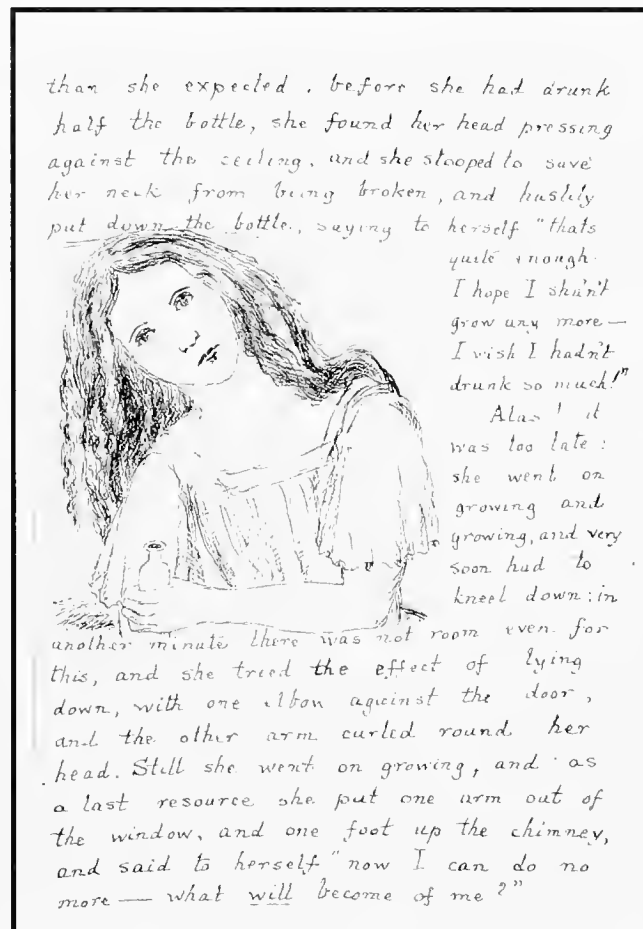 than she expected. before she had drunk
half the bottle, she found her head pressing
against the ceiling, and she stooped to save
her neck from being broken, and hastily
put down the bottle, saying to herself "thats
quite enough.
I hope I shan't
grow any more —
I wish I hadn't
drunk so much!"
Alas! it
was too late:
she went on
growing and
growing, and very
soon had to
kneel down: in
another minute there was not room even for
this, and she tried the effect of lying
down, with one elbow against the door,
and the other arm curled round her
head. Still she went on growing, and as
a last resource she put one arm out of
the window, and one foot up the chimney,
and said to herself "now I can do no
more — what will become of me?"